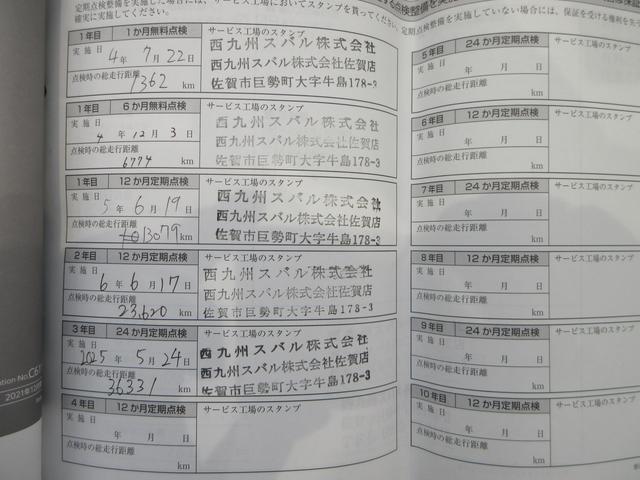 定期点検整備を実施した場合には、サービス工場においてスタンプを貰ってください。定期点検整備を実施していない場合には、保証を受ける権利を失
確実に実施してください。
1年目 1か月無料点検 サービス工場のスタンプ
実施日
4年 7月 22日
点検時の総走行距離
1362 km
西九州スバル株式会社
西九州スバル株式会社佐賀店
佐賀市巨勢町大字牛島178-3
1年目 6か月無料点検 サービス工場のスタンプ
実施日
4年 12月 3日
点検時の総走行距離
6774 km
西九州スバル株式会社
西九州スバル株式会社佐賀店
佐賀市巨勢町大字牛島178-3
1年目 12か月定期点検 サービス工場のスタンプ
実施日
5年 6月 19日
点検時の総走行距離
13079 km
西九州スバル株式会社
西九州スバル株式会社佐賀店
佐賀市巨勢町大字牛島178-3
2年目 12か月定期点検 サービス工場のスタンプ
実施日
6年 6月 17日
点検時の総走行距離
23,620 km
西九州スバル株式会社
西九州スバル株式会社佐賀店
佐賀市巨勢町大字牛島178-3
3年目 24か月定期点検 サービス工場のスタンプ
実施日
2025年 5月 24日
点検時の総走行距離
36331 km
西九州スバル株式会社
西九州スバル株式会社佐賀店
佐賀市巨勢町大字牛島178-3
4年目 12か月定期点検 サービス工場のスタンプ
実施日
年 月 日
点検時の総走行距離
km
5年目 24か月定期点検 サービス工場のスタンプ
実施日
年 月 日
点検時の総走行距離
km
6年目 12か月定期点検 サービス工場のスタンプ
実施日
年 月 日
点検時の総走行距離
km
7年目 24か月定期点検 サービス工場のスタンプ
実施日
年 月 日
点検時の総走行距離
km
8年目 12か月定期点検 サービス工場のスタンプ
実施日
年 月 日
点検時の総走行距離
km
9年目 24か月定期点検 サービス工場のスタンプ
実施日
年 月 日
点検時の総走行距離
km
10年目 12か月定期点検 サービス工場のスタンプ
実施日
年 月 日
点検時の総走行距離
km